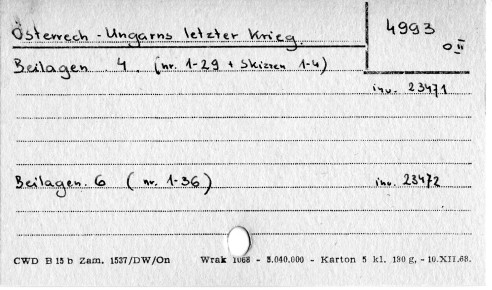 Österrech-Ungarns letzter Krieg.
4993
o II
Beilagen 4. (nr. 1-29 + Skizzen 1-4)
inv. 23471
Beilagen. 6 (nr. 1-36)
inv. 23472
CWD B 15 b Zam. 1537/DW/On Wrak 1068 - 5.040.000 - Karton 5 kl. 180 g, - 10.XII.68.